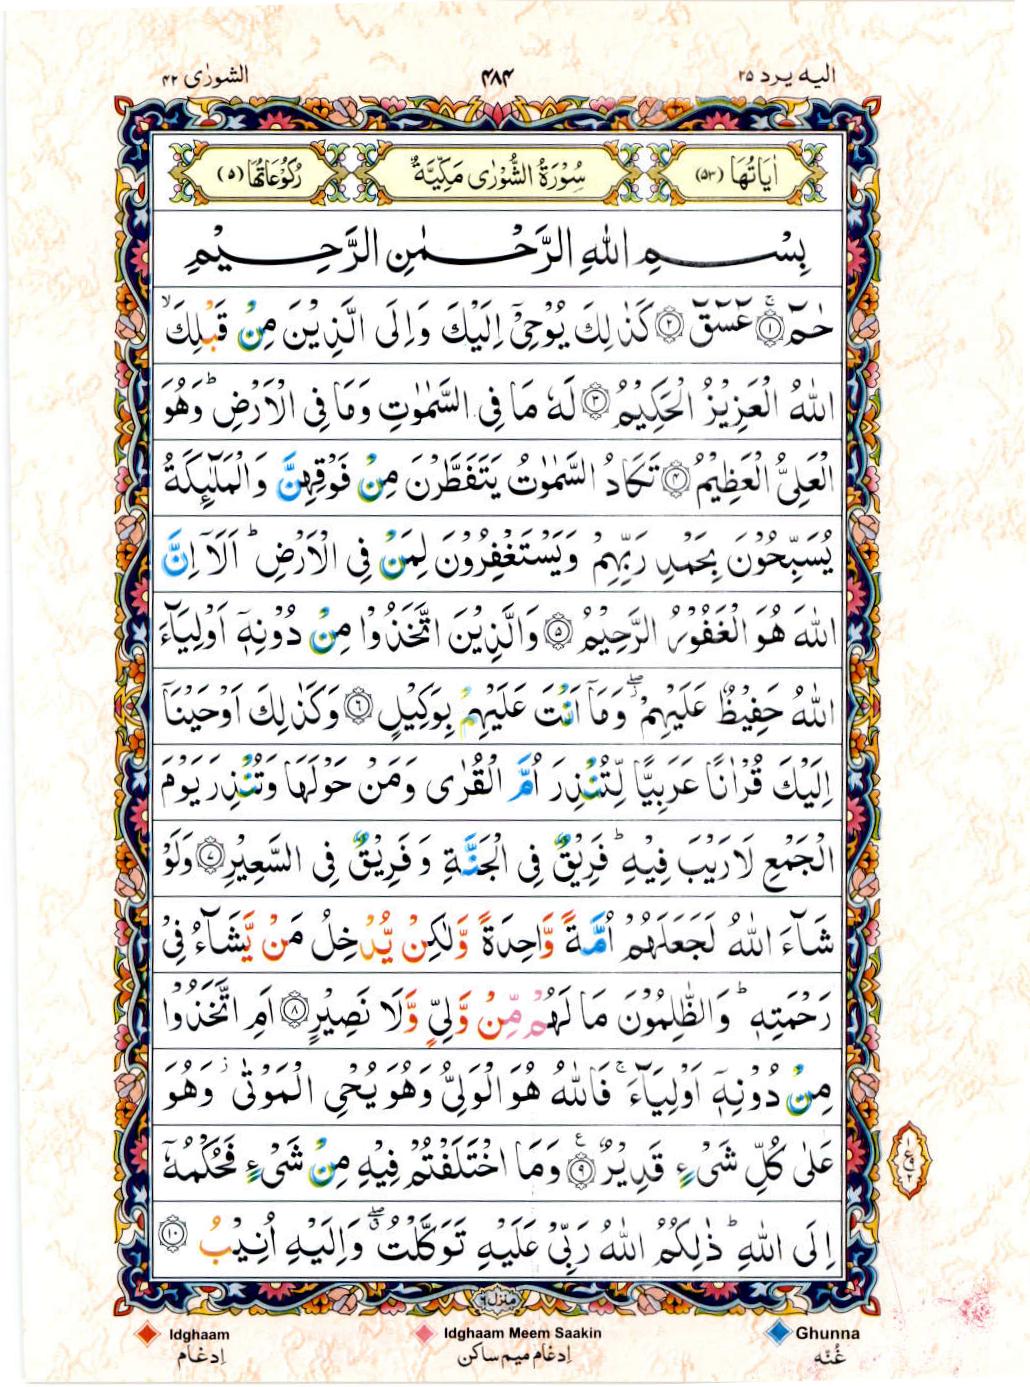 الیه یرد ٢٥
۴۸۴
الشورٰی ۴۲
اٰیَاتُهَا (۵۳)
سُوْرَةُ الشُّوْرٰى مَكِّيَّةٌ
رُكُوْعَاتُهَا (۵)
بِسْمِ اللّٰهِ الرَّحْمٰنِ الرَّحِيْمِ
حٰمٓ ۚ‏﴿۱﴾ عٓسٓقٓ ﴿۲﴾ كَذٰلِكَ يُوْحِىْۤ اِلَيْكَ وَاِلَى الَّذِيْنَ مِنْ قَبْلِكَ ۙ
اللّٰهُ الْعَزِيْزُ الْحَكِيْمُ ﴿۳﴾ لَهٗ مَا فِى السَّمٰوٰتِ وَمَا فِى الْاَرْضِ ؕ وَهُوَ
الْعَلِىُّ الْعَظِيْمُ ﴿۴﴾ تَكَادُ السَّمٰوٰتُ يَتَفَطَّرْنَ مِنْ فَوْقِهِنَّ وَالْمَلٰٓئِكَةُ
يُسَبِّحُوْنَ بِحَمْدِ رَبِّهِمْ وَيَسْتَغْفِرُوْنَ لِمَنْ فِى الْاَرْضِ ؕ اَلَاۤ اِنَّ
اللّٰهَ هُوَ الْغَفُوْرُ الرَّحِيْمُ ﴿۵﴾ وَالَّذِيْنَ اتَّخَذُوْا مِنْ دُوْنِهٖۤ اَوْلِيَآءَ
اللّٰهُ حَفِيْظٌ عَلَيْهِمْ ۖ وَمَاۤ اَنْتَ عَلَيْهِمْ بِوَكِيْلٍ ﴿۶﴾ وَكَذٰلِكَ اَوْحَيْنَاۤ
اِلَيْكَ قُرْاٰنًا عَرَبِيًّا لِّتُنْذِرَ اُمَّ الْقُرٰى وَمَنْ حَوْلَهَا وَتُنْذِرَ يَوْمَ
الْجَمْعِ لَا رَيْبَ فِيْهِ ؕ فَرِيْقٌ فِى الْجَنَّةِ وَفَرِيْقٌ فِى السَّعِيْرِ ﴿۷﴾ وَلَوْ
شَآءَ اللّٰهُ لَجَعَلَهُمْ اُمَّةً وَّاحِدَةً وَّلٰكِنْ يُّدْخِلُ مَنْ يَّشَآءُ فِىْ
رَحْمَتِهٖ ؕ وَالظّٰلِمُوْنَ مَا لَهُمْ مِّنْ وَّلِىٍّ وَّلَا نَصِيْرٍ ﴿۸﴾ اَمِ اتَّخَذُوْا
مِنْ دُوْنِهٖۤ اَوْلِيَآءَ ۚ فَاللّٰهُ هُوَ الْوَلِىُّ وَهُوَ يُحْىِ الْمَوْتٰى ۫ وَهُوَ
عَلٰى كُلِّ شَىْءٍ قَدِيْرٌ ﴿۹﴾ وَمَا اخْتَلَفْتُمْ فِيْهِ مِنْ شَىْءٍ فَحُكْمُهٗۤ
اِلَى اللّٰهِ ؕ ذٰلِكُمُ اللّٰهُ رَبِّىْ عَلَيْهِ تَوَكَّلْتُ ۖ وَاِلَيْهِ اُنِيْبُ ﴿۱۰﴾
منزل ٦
Idghaam
اِدغام
Idghaam Meem Saakin
اِدغام میم ساکن
Ghunna
غُنّه